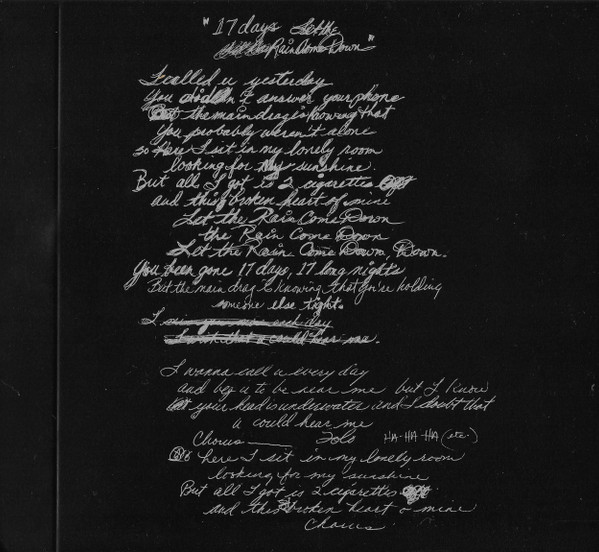 "17 days Let the
Rain Come Down"
I called u yesterday
You didn't answer your phone
But the main drag is knowing that
You probably weren't alone
so Here I sit in my lonely room
looking for my sunshine
But all I got is 2 cigarettes
and this broken heart of mine
Let the Rain Come Down
the Rain Come Down
Let the Rain Come Down, Down.
You been gone 17 days, 17 long nights
But the main drag is knowing that you're holding
someone else tight.
I each day
that u could hear me.
I wanna call u every day
and beg u to be near me but I know
your head is underwater and I doubt that
u could hear me
Chorus Solo HA-HA-HA (etc.)
here I sit in my lonely room
looking for my sunshine
But all I got is 2 cigarettes
and this broken heart o mine
Chorus